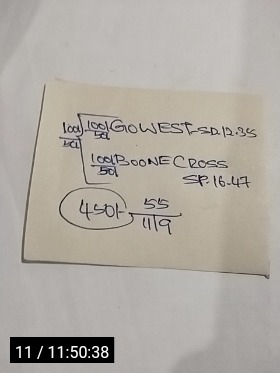 100/50 100/50 GOWEST-SD.12.35
100/50 BOONECROSS
SP.16.47
450/- 55/11/9
11 / 11:50:38